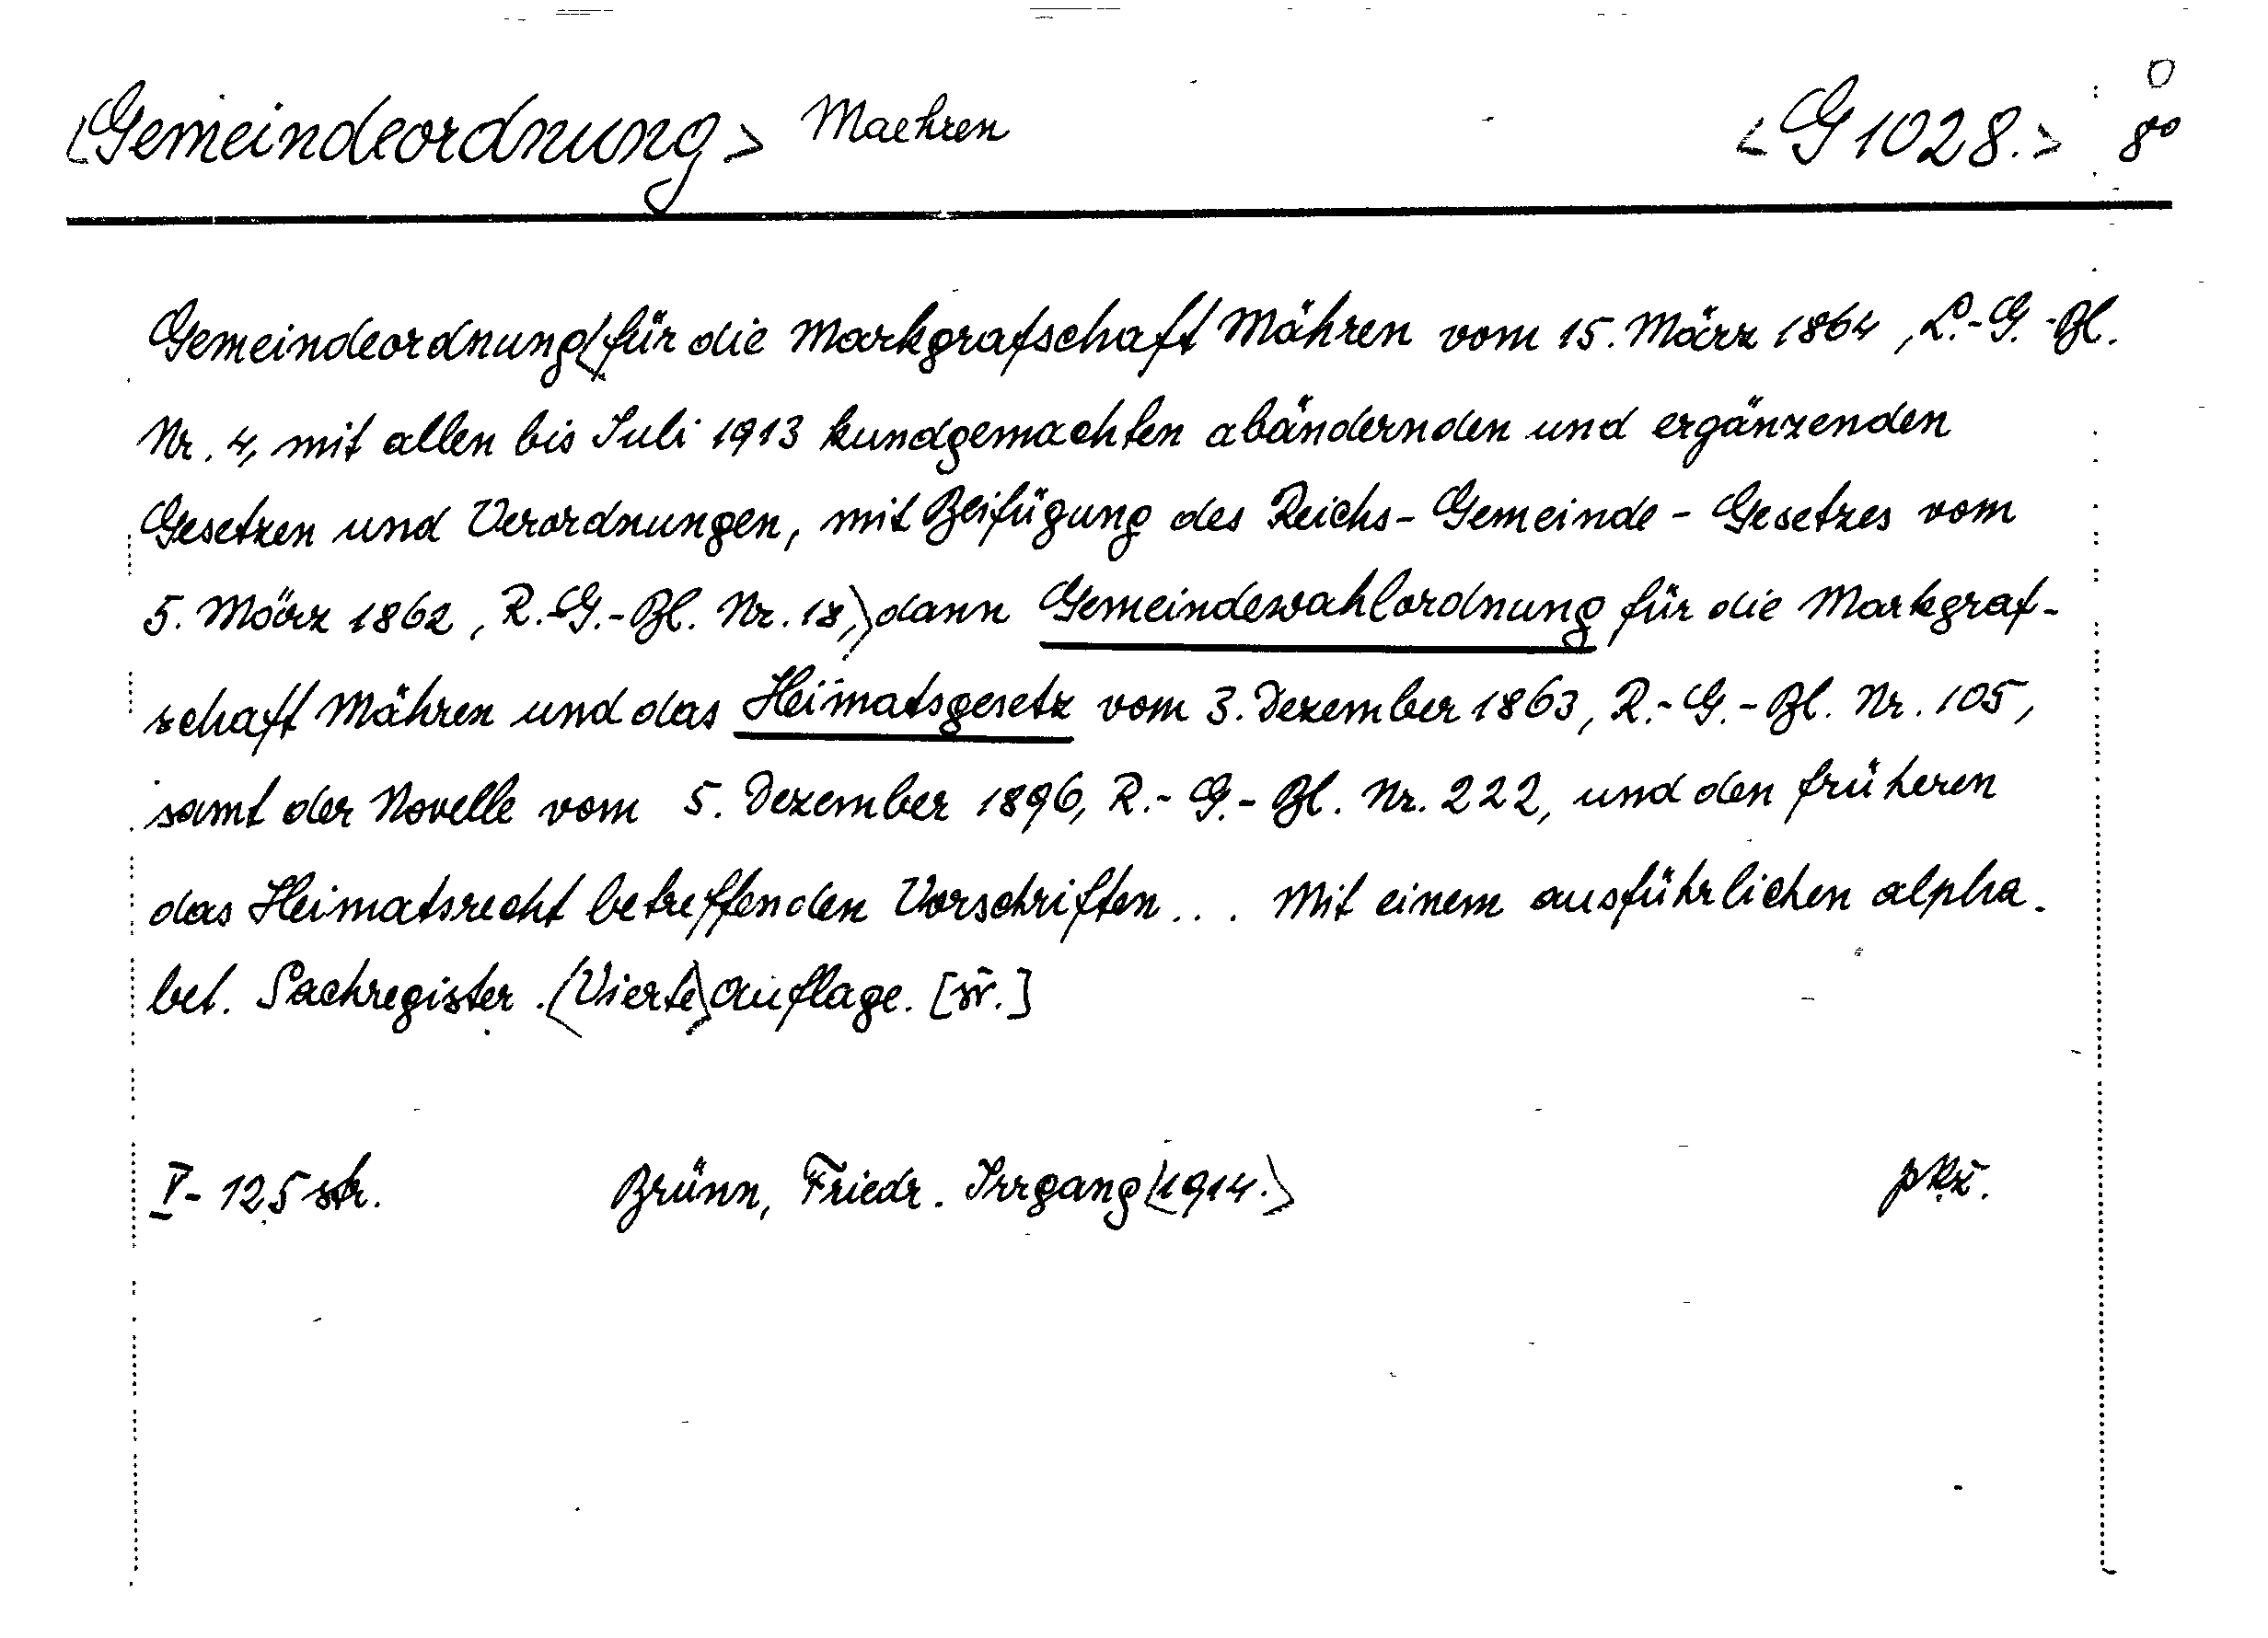 <Gemeindeordnung> Maehren <G 1028.> 8°
Gemeindeordnung <für die Markgrafschaft Mähren vom 15. März 1864, L.-G.-Bl.
Nr. 4, mit allen bis Juli 1913 kundgemachten abändernden und ergänzenden
Gesetzen und Verordnungen, mit Beifügung des Reichs-Gemeinde-Gesetzes vom
5. März 1862, R.-G.-Bl. Nr. 18,> dann Gemeindewahlordnung für die Markgraf-
schaft Mähren und das Heimatsgesetz vom 3. Dezember 1863, R.-G.-Bl. Nr. 105,
samt der Novelle vom 5. Dezember 1896, R.-G.-Bl. Nr. 222, und den früheren
das Heimatsrecht betreffenden Vorschriften... Mit einem ausführlichen alpha-
bet. Sachregister. <Vierte> Auflage.
V-125 str. Brünn, Friedr. Irrgang <1914.>